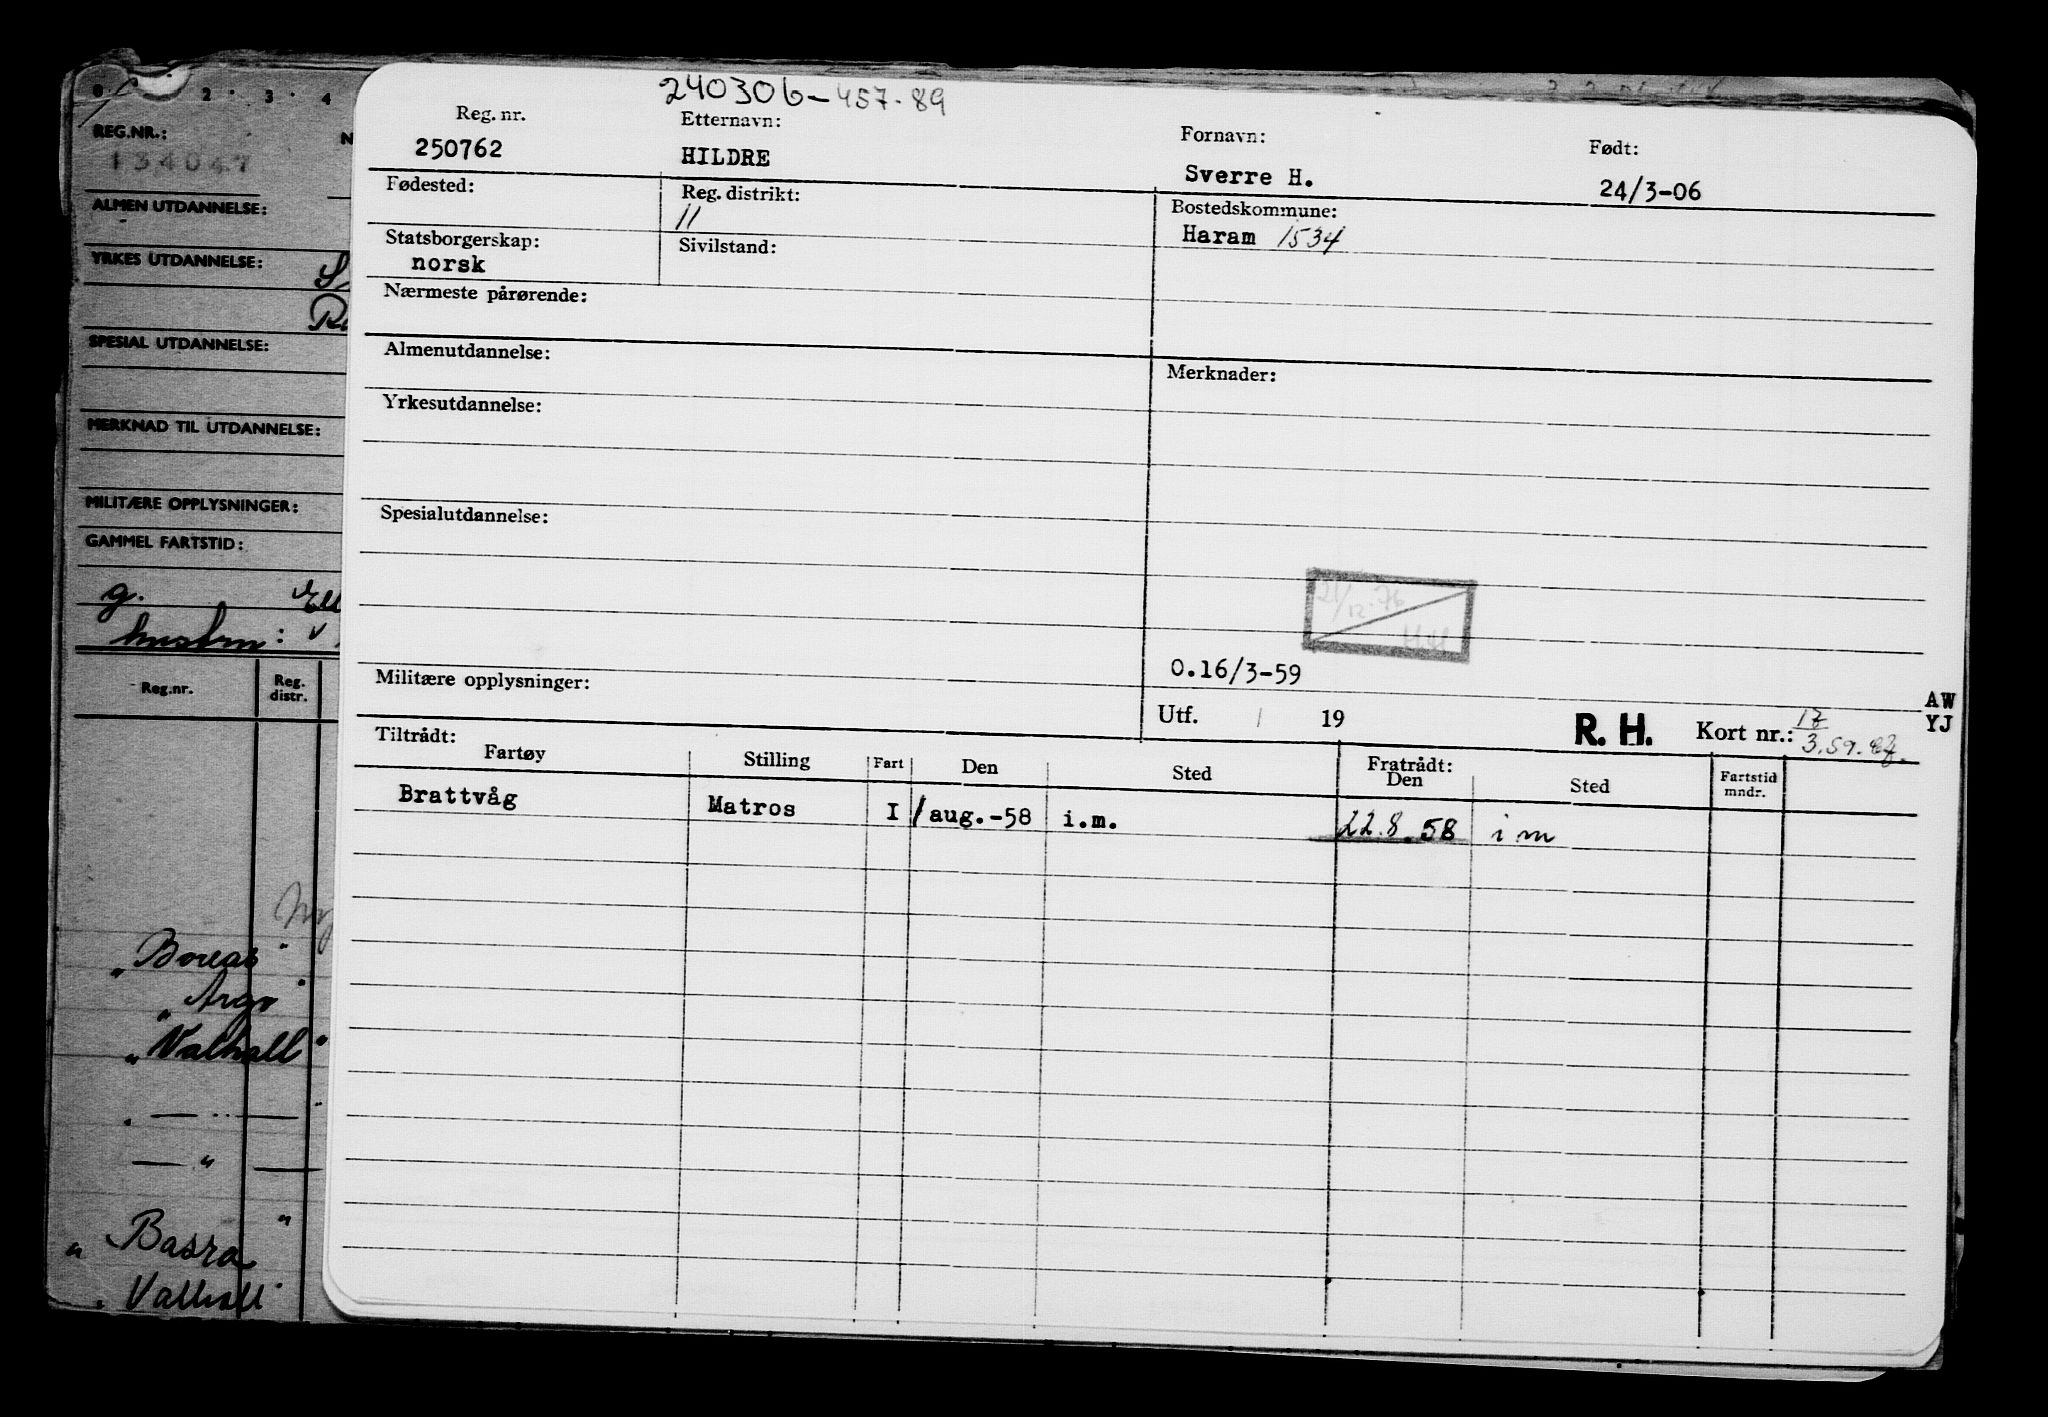 240306-457.89
Reg. nr. Etternavn: Fornavn: Født:
250762 HILDRE Sverre H. 24/3-06
Fødested: Reg. distrikt: Bostedskommune:
11 Haram 1534
Statsborgerskap: Sivilstand:
norsk
Nærmeste pårørende:
Almenutdannelse: Merknader:
Yrkesutdannelse:
Spesialutdannelse:
21/12-76
0.16/3-59
Militære opplysninger:
Utf. / 19 R. H. Kort nr.:
AW
YJ
Tiltrådt: Fratrådt:
Fartøy Stilling Fart Den Sted Den Sted Fartstid mndr.
Brattvåg Matros I /aug.-58 i.m. 22.8.58 i m
0 2 3 4
REG.NR.: N
134047
ALMEN UTDANNELSE:
YRKES UTDANNELSE:
SPESIAL UTDANNELSE:
MERKNAD TIL UTDANNELSE:
MILITÆRE OPPLYSNINGER:
GAMMEL FARTSTID:
g.
Reg.nr. Reg. distr.
"Boreas"
"Argo"
"Valhall"
" — " — "
— " —
"Basra"
"Valhall"